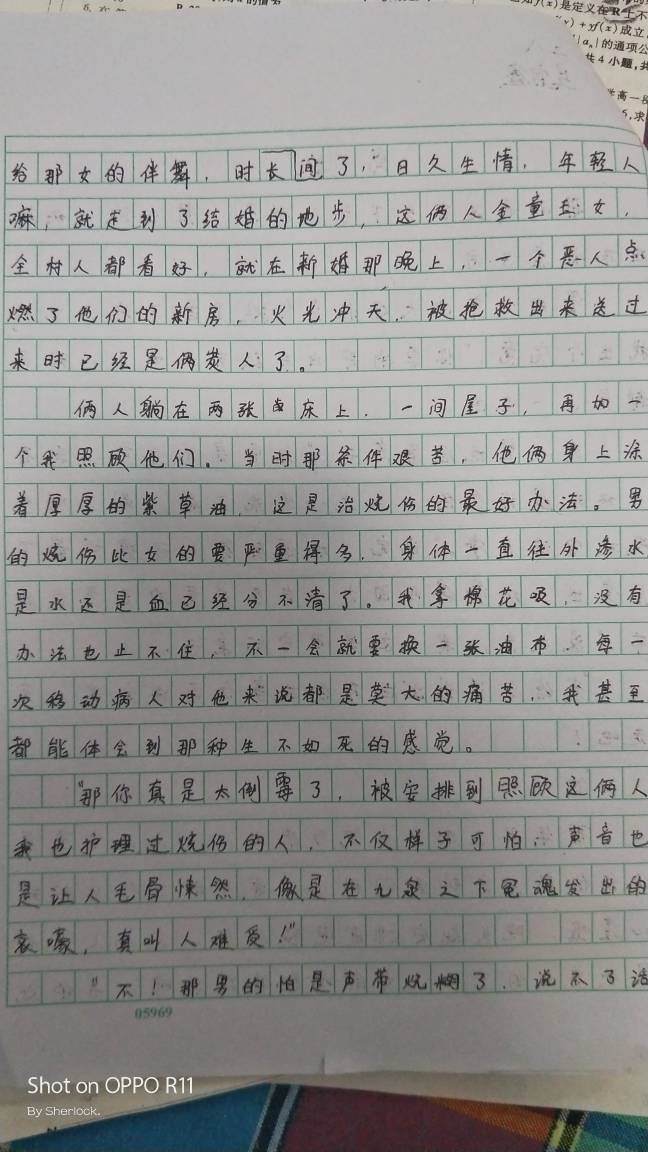 给那女的伴舞，时长间了，日久生情，年轻人
嘛，就走到了结婚的地步，这俩人金童玉女，
全村人都看好，就在新婚那晚上，一个恶人点
燃了他们的新房，火光冲天，被抢救出来送过
来时已经是俩炭人了。
俩人躺在两张床上，一间屋子，再加一
个我照顾他们。当时那条件艰苦，他俩身上涂
着厚厚的紫草油，这是治烧伤的最好办法。男
的烧伤比女的要严重得多，身体一直往外渗水
是水还是血已经分不清了。我拿棉花吸，没有
办法也止不住，不一会就要换一张油布，每一
次移动病人对他来说都是莫大的痛苦，我甚至
都能体会到那种生不如死的感觉。
“那你真是太倒霉了，被安排到照顾这俩人
我也护理过烧伤的人，不仅样子可怕，声音也
是让人毛骨悚然，像是在九泉之下冤魂发出的
哀嚎，真叫人难受！”
“不！那男的怕是声带烧糊了，说不了话
05969
Shot on OPPO R11
By Sherlock.